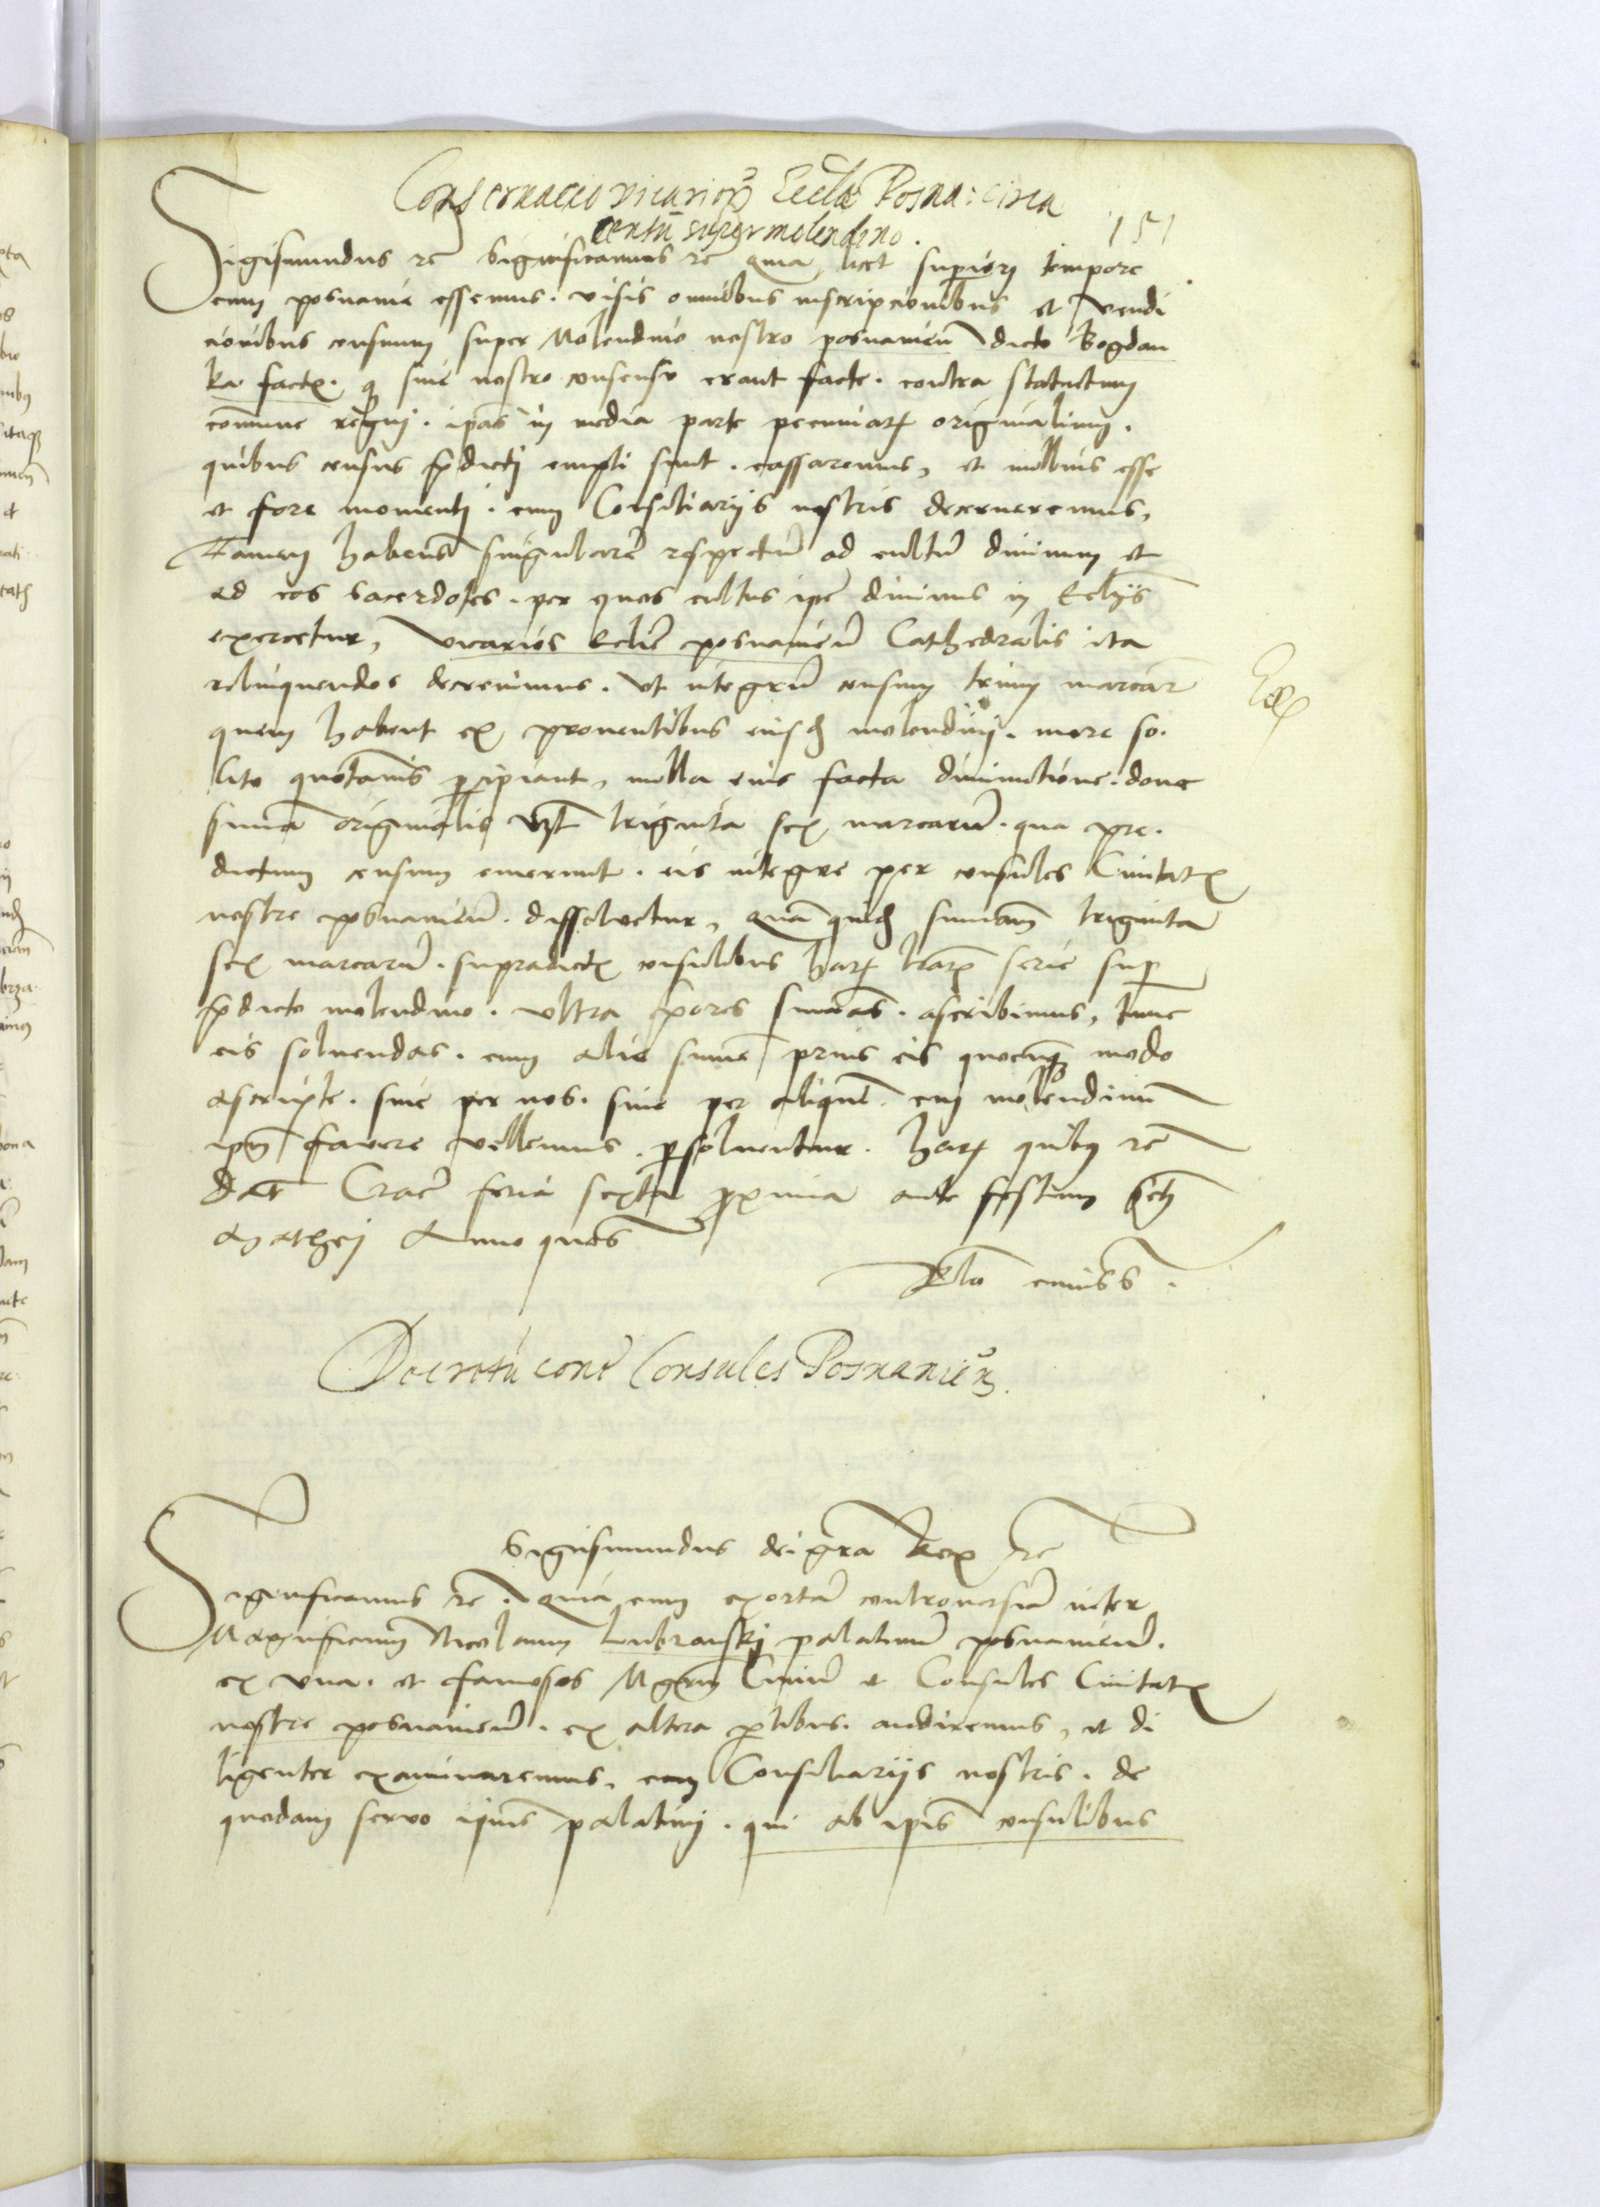 Conservacio vicarior Eccla Posna: circa
centu super molendino.
151
Sigismundus rc Significamus rc Quia licet superiori tempore
cum posnanie essemus. visis omnibus inscripcionibus et vendi
cionibus censuum super Molendino nostro posnanien dicto Bogdan
ka factis. q sine nostro consensu erant facte. contra statutum
comune regni. ipas in media parte pecuniar originalium.
quibus census pdicti empti sunt. cassaremus, et nullius esse
et fore momenti. cum Consiliarijs nostris decerneremus,
Tamen habens singulare respectu ad cultu diuinum et
ad eos sacerdotes. per quos cultus ipe diuinus in Eclijs
exercetur, vicarios Eclie posnanien Cathedralis ita
relinquendos decreuimus. vt integru censum trium marcar
quem habent ex prouentibus eiusd molendini. more so.
lito quotanis percipiant, nulla eius facta diminutione. donec
suma originalis vzt triginta sex marcaru. qua pre.
dictum censum emerunt. eis integre per consules Ciuitatis
nostre posnanien. dissoluetur, Qua quid sumam triginta
sex marcaru. supradictis consulibus har lrar serie sup
pdicto molendino. vltra priores sumas. ascribimus, tunc
eis soluendas. cum alie sume prius eis quocunq modo
ascripte. siue per nos. siue per aliquem. cui molendinu
ipm fauere vellemus. persoluentur. har quibus rc
Dat Crac feria sexta proxima ante festum Scti
Mathei Anno quos
Rlo eiuss.
Decretu cont Consules Posnanien.
Sigismundus dei gra Rex rc
Significamus rc. Quia cum exorta controuersia inter
Magnificum Nicolaum Lubranski palatinu posnanien.
ex vna. et famosos Mgrm Ciuiu et Consules Ciuitatis
nostre posnanien. ex altera ptibus. audiremus, et di
ligenter examinaremus, cum Consiliarijs nostris. de
quodam seruo ipius palatini. qui ab ipis consulibus